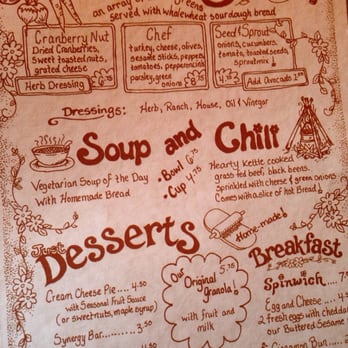 an array of greens
served with wholewheat sourdough bread
Cranberry Nut
Dried Cranberries,
sweet toasted nuts,
grated cheese
Herb Dressing
Chef
turkey, cheese, olives,
sesame sticks, peppers,
tomatoes, pepperoncini
parsley, green
onions
Seed & Sprout
onions, cucumbers,
tomato, toasted seeds,
sproutmix!
Add Avocado
Dressings: Herb, Ranch, House, Oil & Vinegar
Soup and Chili
Vegetarian Soup of the Day
With Homemade Bread
• Bowl 6.75
• Cup 4.75
Hearty Kettle cooked
grass-fed beef, black beans,
Sprinkled with cheese & green onions
Comes with a slice of hot Bread!
Just
Desserts
Home-made!
Cream Cheese Pie .... 4.50
with Seasonal Fruit Sauce
(or sweet nuts, maple syrup)
Synergy Bar ........ 3.50
Our 5.75
Original
Granola!
with fruit and
milk
Breakfast
Spinwich .... 7.
Egg and Cheese .... 4
2 fresh eggs with cheddar
our Buttered Sesame
Cinnamon Bun